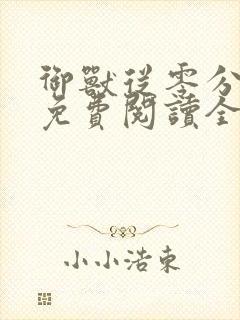 御獸從零分
免費閱讀全
小小浩東